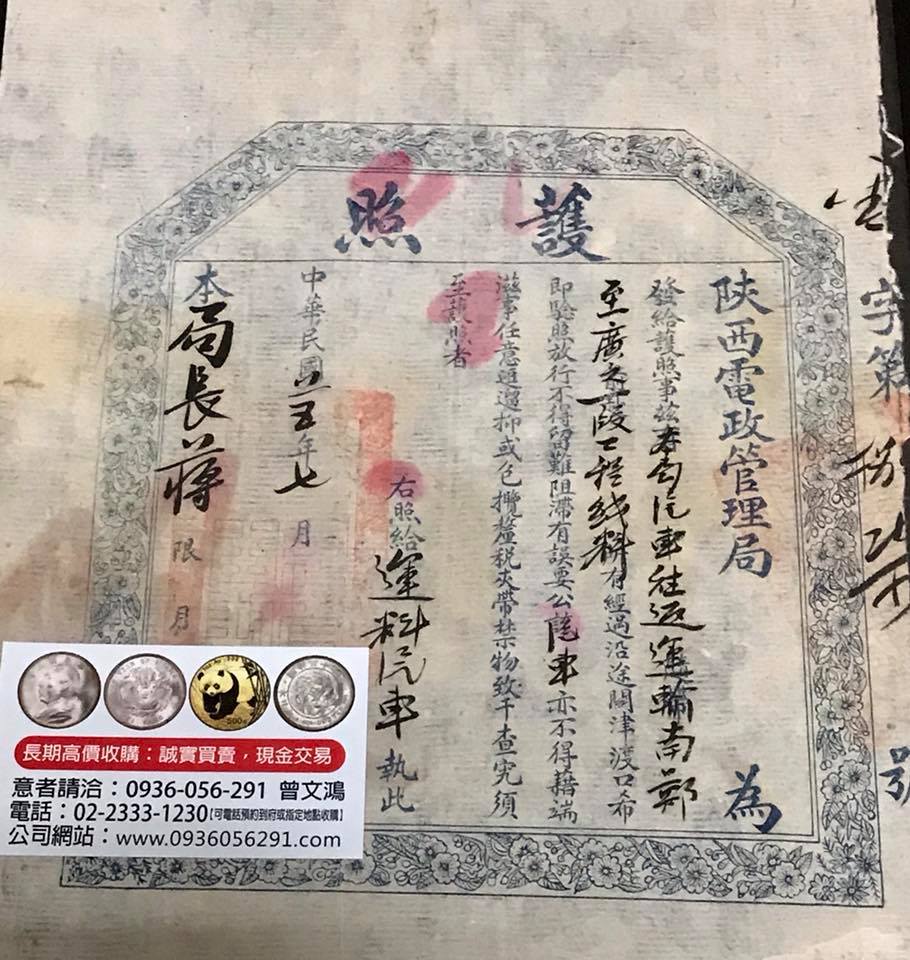 護照
陝西電政管理局
為
發給護照事茲有包汽車往返運輸南鄭
至廣元段工程綫料有經過沿途關津渡口希
即驗照放行不得留難阻滯有誤要公該車亦不得藉端
滋事任意逗遛抑或包攬釐稅夾帶禁物致干查究須
至護照者
右照給運料汽車執此
中華民國廿五年七月
本局長蔣
限 月
字第
號
長期高價收購：誠實買賣，現金交易
意者請洽：0936-056-291 曾文鴻
電話：02-2333-1230【可電話預約到府或指定地點收購】
公司網站：www.0936056291.com